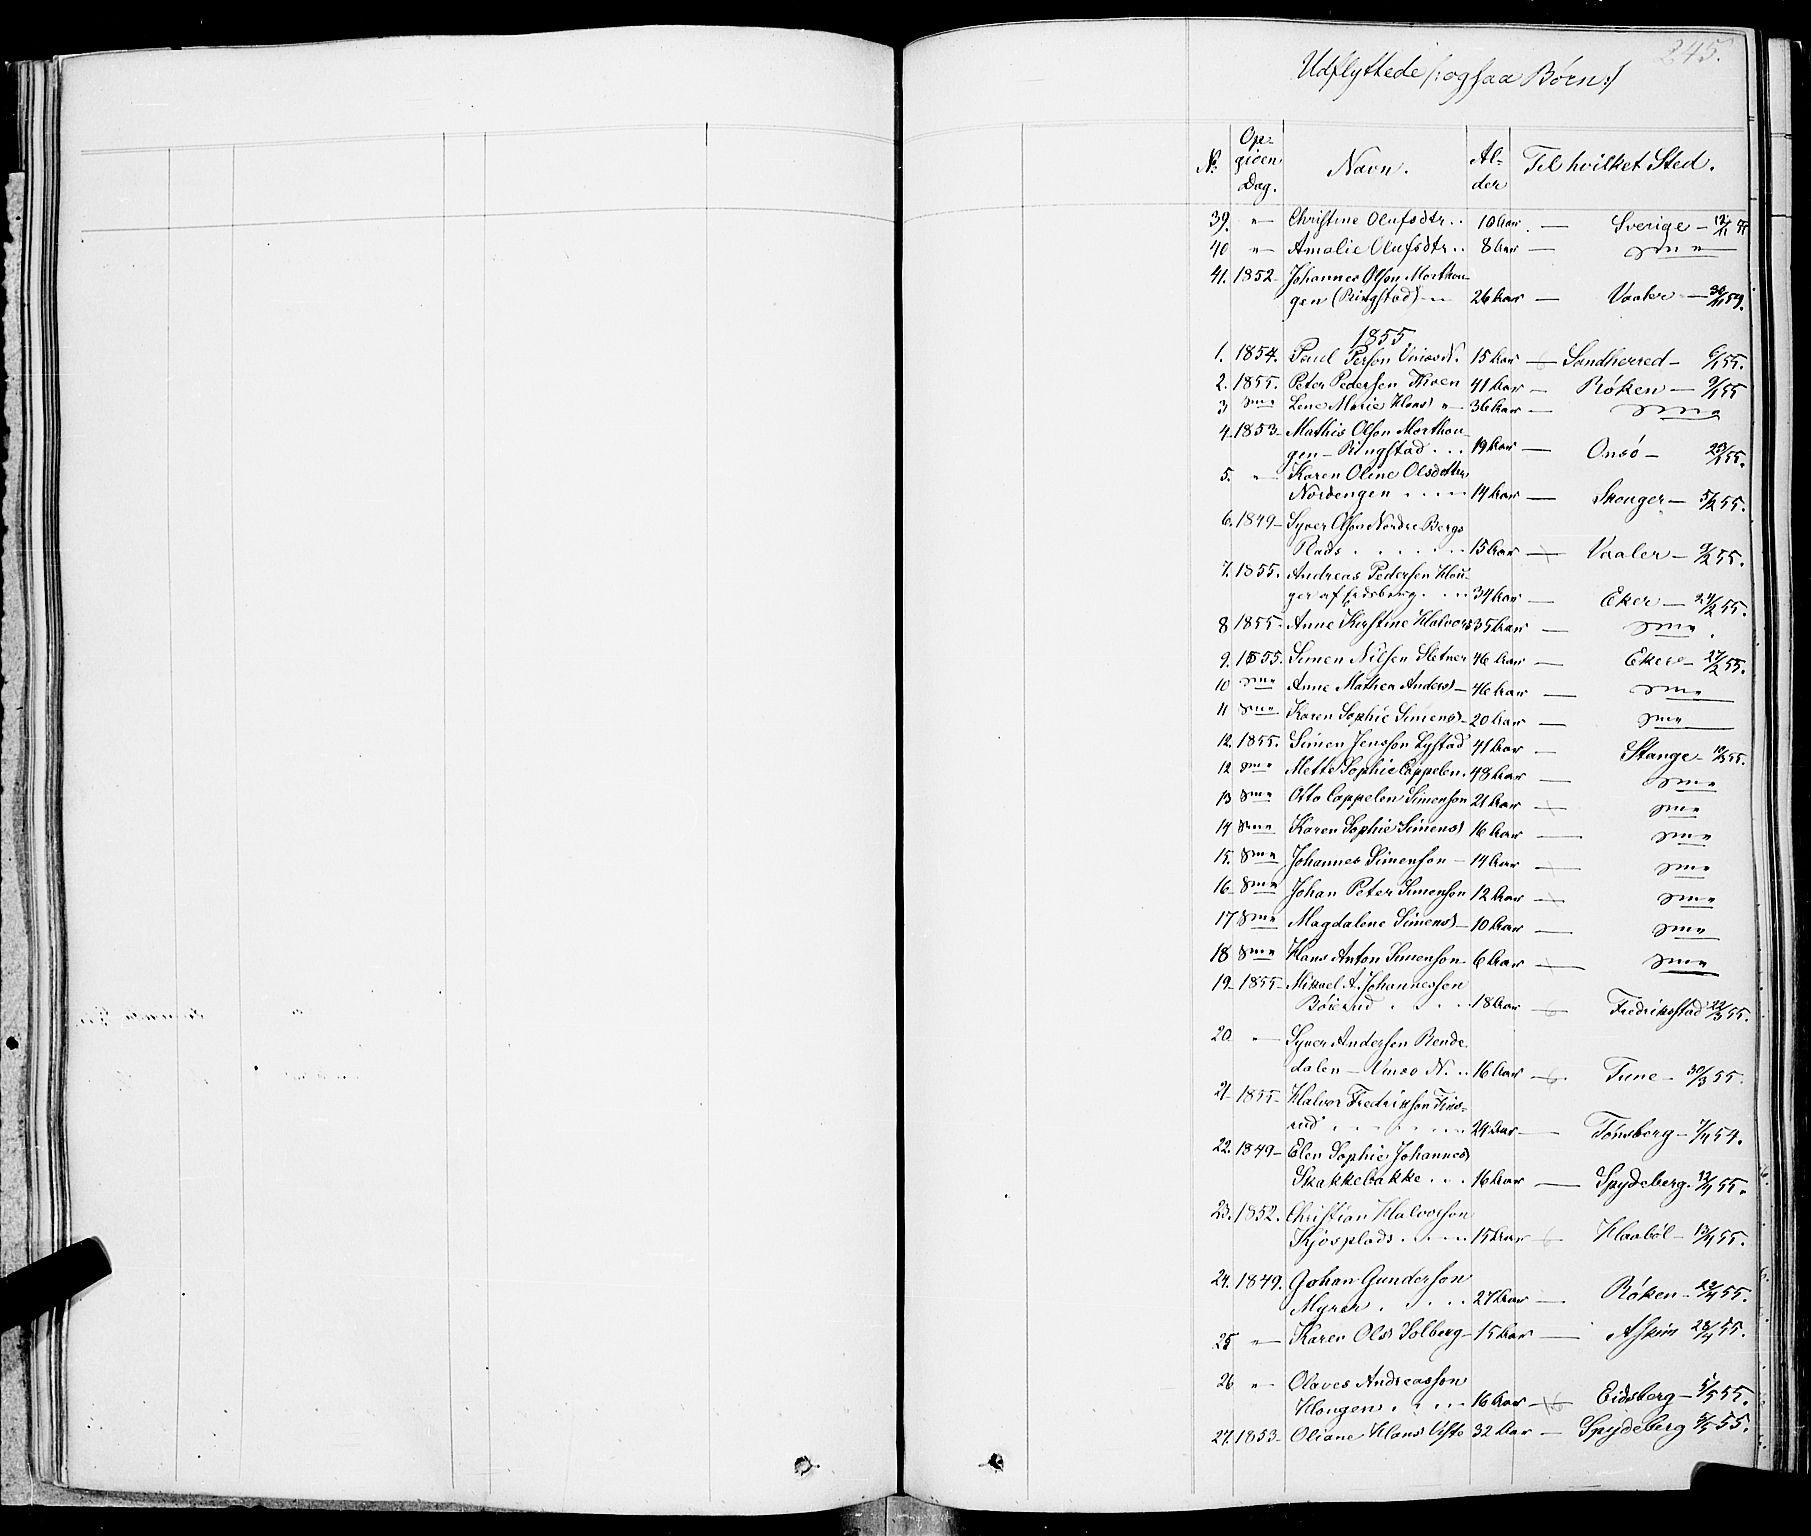 245.
Udflyttede /: ogsaa Børn :/
No. Opgiven Dag. Navn. Alder Til hvilket Sted.
39. " Christine Olufsdtr. . 10 Aar. — Sverige — 12/11 55
40 " Amalie Olufsdtr. . 8 Aar — Sme
41. 1852 — Johannes Olsen Morthou-
gen (Ringstad) — 26 Aar — Vaaler — 30/11 59.
1855
1. 1854. Poul Person Vinsø N. 15 Aar — Sandherred — 6/1 55.
2. 1855. Peter Pedersen Thven 41 Aar — Røken — 9/1 55
3 Sme Lene Marie Hansd " — 36 Aar — Sme
4. 1853 — Mathis Olson Morthou-
gen — Ringstad . . . 19 Aar — Onsö — 23/1 55.
5. " Karen Oline Olsdatter
Nordengen . . . . 14 Aar — Skouger — 5/2 55.
6. 1849 — Syver Olson Nordre Bergs
Plads . . . . . . 15 Aar — Vaaler — 9/2 55.
7. 1855. Andreas Pedersen Hou-
ger af Eidsberg . . . 34 Aar — Eker — 24/2 55.
8 1855. Anne Kirstine Halvors 35 Aar — Sme
9. 1855. Simen Nilsen Sletner 46 Aar — Eker — 27/2 55.
10 Sme Anne Mathea Andersd — 46 Aar — Sme
11 Sme Karen Sophie Simensd — 20 Aar — Sme
12. 1855. Simen Jensson Lystad 41 Aar — Stange — 10/3 55.
12 Sme Mette Sophie Cappelen. 48 Aar — Sme
13 Sme Otto Cappelen Simenson 21 Aar — Sme
14 Sme Karen Sophie Simensd 16 Aar — Sme
15. Sme Johannes Simenson — 14 Aar — Sme
16 Sme Johan Peter Simenson 12 Aar — Sme
17 Sme Magdalene Simensd — 10 Aar — Sme
18 Sme Hans Anton Simenson — 6 Aar — Sme
19 — 1855 — Mikael A. Johannesson
Böierud . . . . 18 Aar — Fredriksstad 22/3 55.
20 " Syver Anderson Rende
dalen — Vinsø N. . . 16 Aar — Tune — 30/3 55.
21 — 1855 — Halvor Fredrikson Fins-
rud . . . . . . 24 Aar — Tönsberg — 7/4 54.
22. 1849 — Elen Sophie Johannesd
Skakkebakke . . . 16 Aar — Spydeberg. 12/4 55.
23. 1852. Christian Halvorson
Kjosplads . . . . . 15 Aar Haaböl — 13/4 55.
24. 1849. Johan Gunderson
Myrer . . . . . 27 Aar — Røken — 22/4 55.
25 " Karen Olsd Solberg — 15 Aar — Askim 28/4 55.
26 " Olaves Andreasson
Hougen . . . . 16 Aar — Eidsberg — 5/5 55.
27. 1853 — Oliane Hansd Visto 32 Aar — Spydeberg 5/5 55.